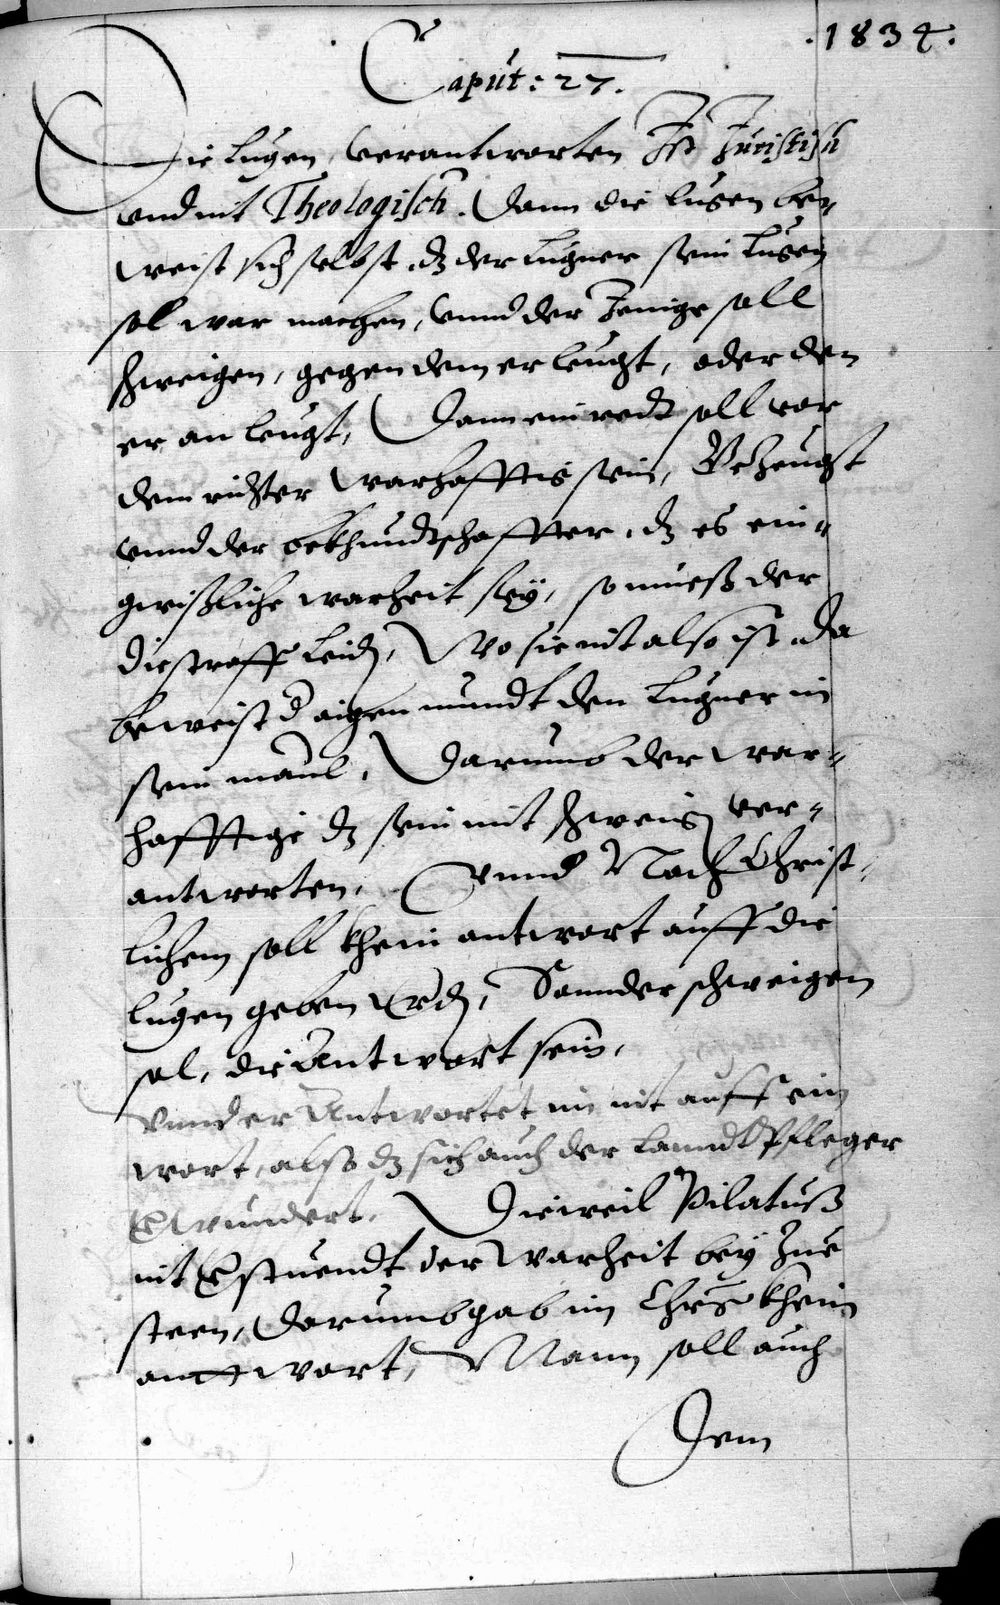 .1834.
Caput: 27.
Die lugen verantworten Ist Juristisch
vnd nit Theologisch. Dann die lugen be„
weist sich selbst, dz der lugner sein lugen
sol war machen, vnnd der Jenige soll
schweigen, gegen dem er leugt, oder den
er an leugt, Dann ein redt soll vor
dem richter warhafftig sein, Bezeugt
vnnd der bekhundtschaffter, dz es ein„
gwißliche warheit sey, so mueß der
die straff leiden, Wo sie nit also ist, da
beweist d aigen mundt den lugner in
sein maul, Darumb der war„
hafftige dz sein mit schweigen ver„
antworten, Vnnd Nach Christ„
lichem soll khein antwort auff die
lugen geben werden, Sonnder schweigen
sol, die Antwort sein,
Vnnd er Antwortet im nit auff ein
wort, also dz sich auch der Lanndt Pfleger
verwundert, Dieweil Pilatuß
nit verstuendt der Warheit bey Zue
steen, Darumb gab im Chrs khein
anttwort, Mann soll auch
Dem